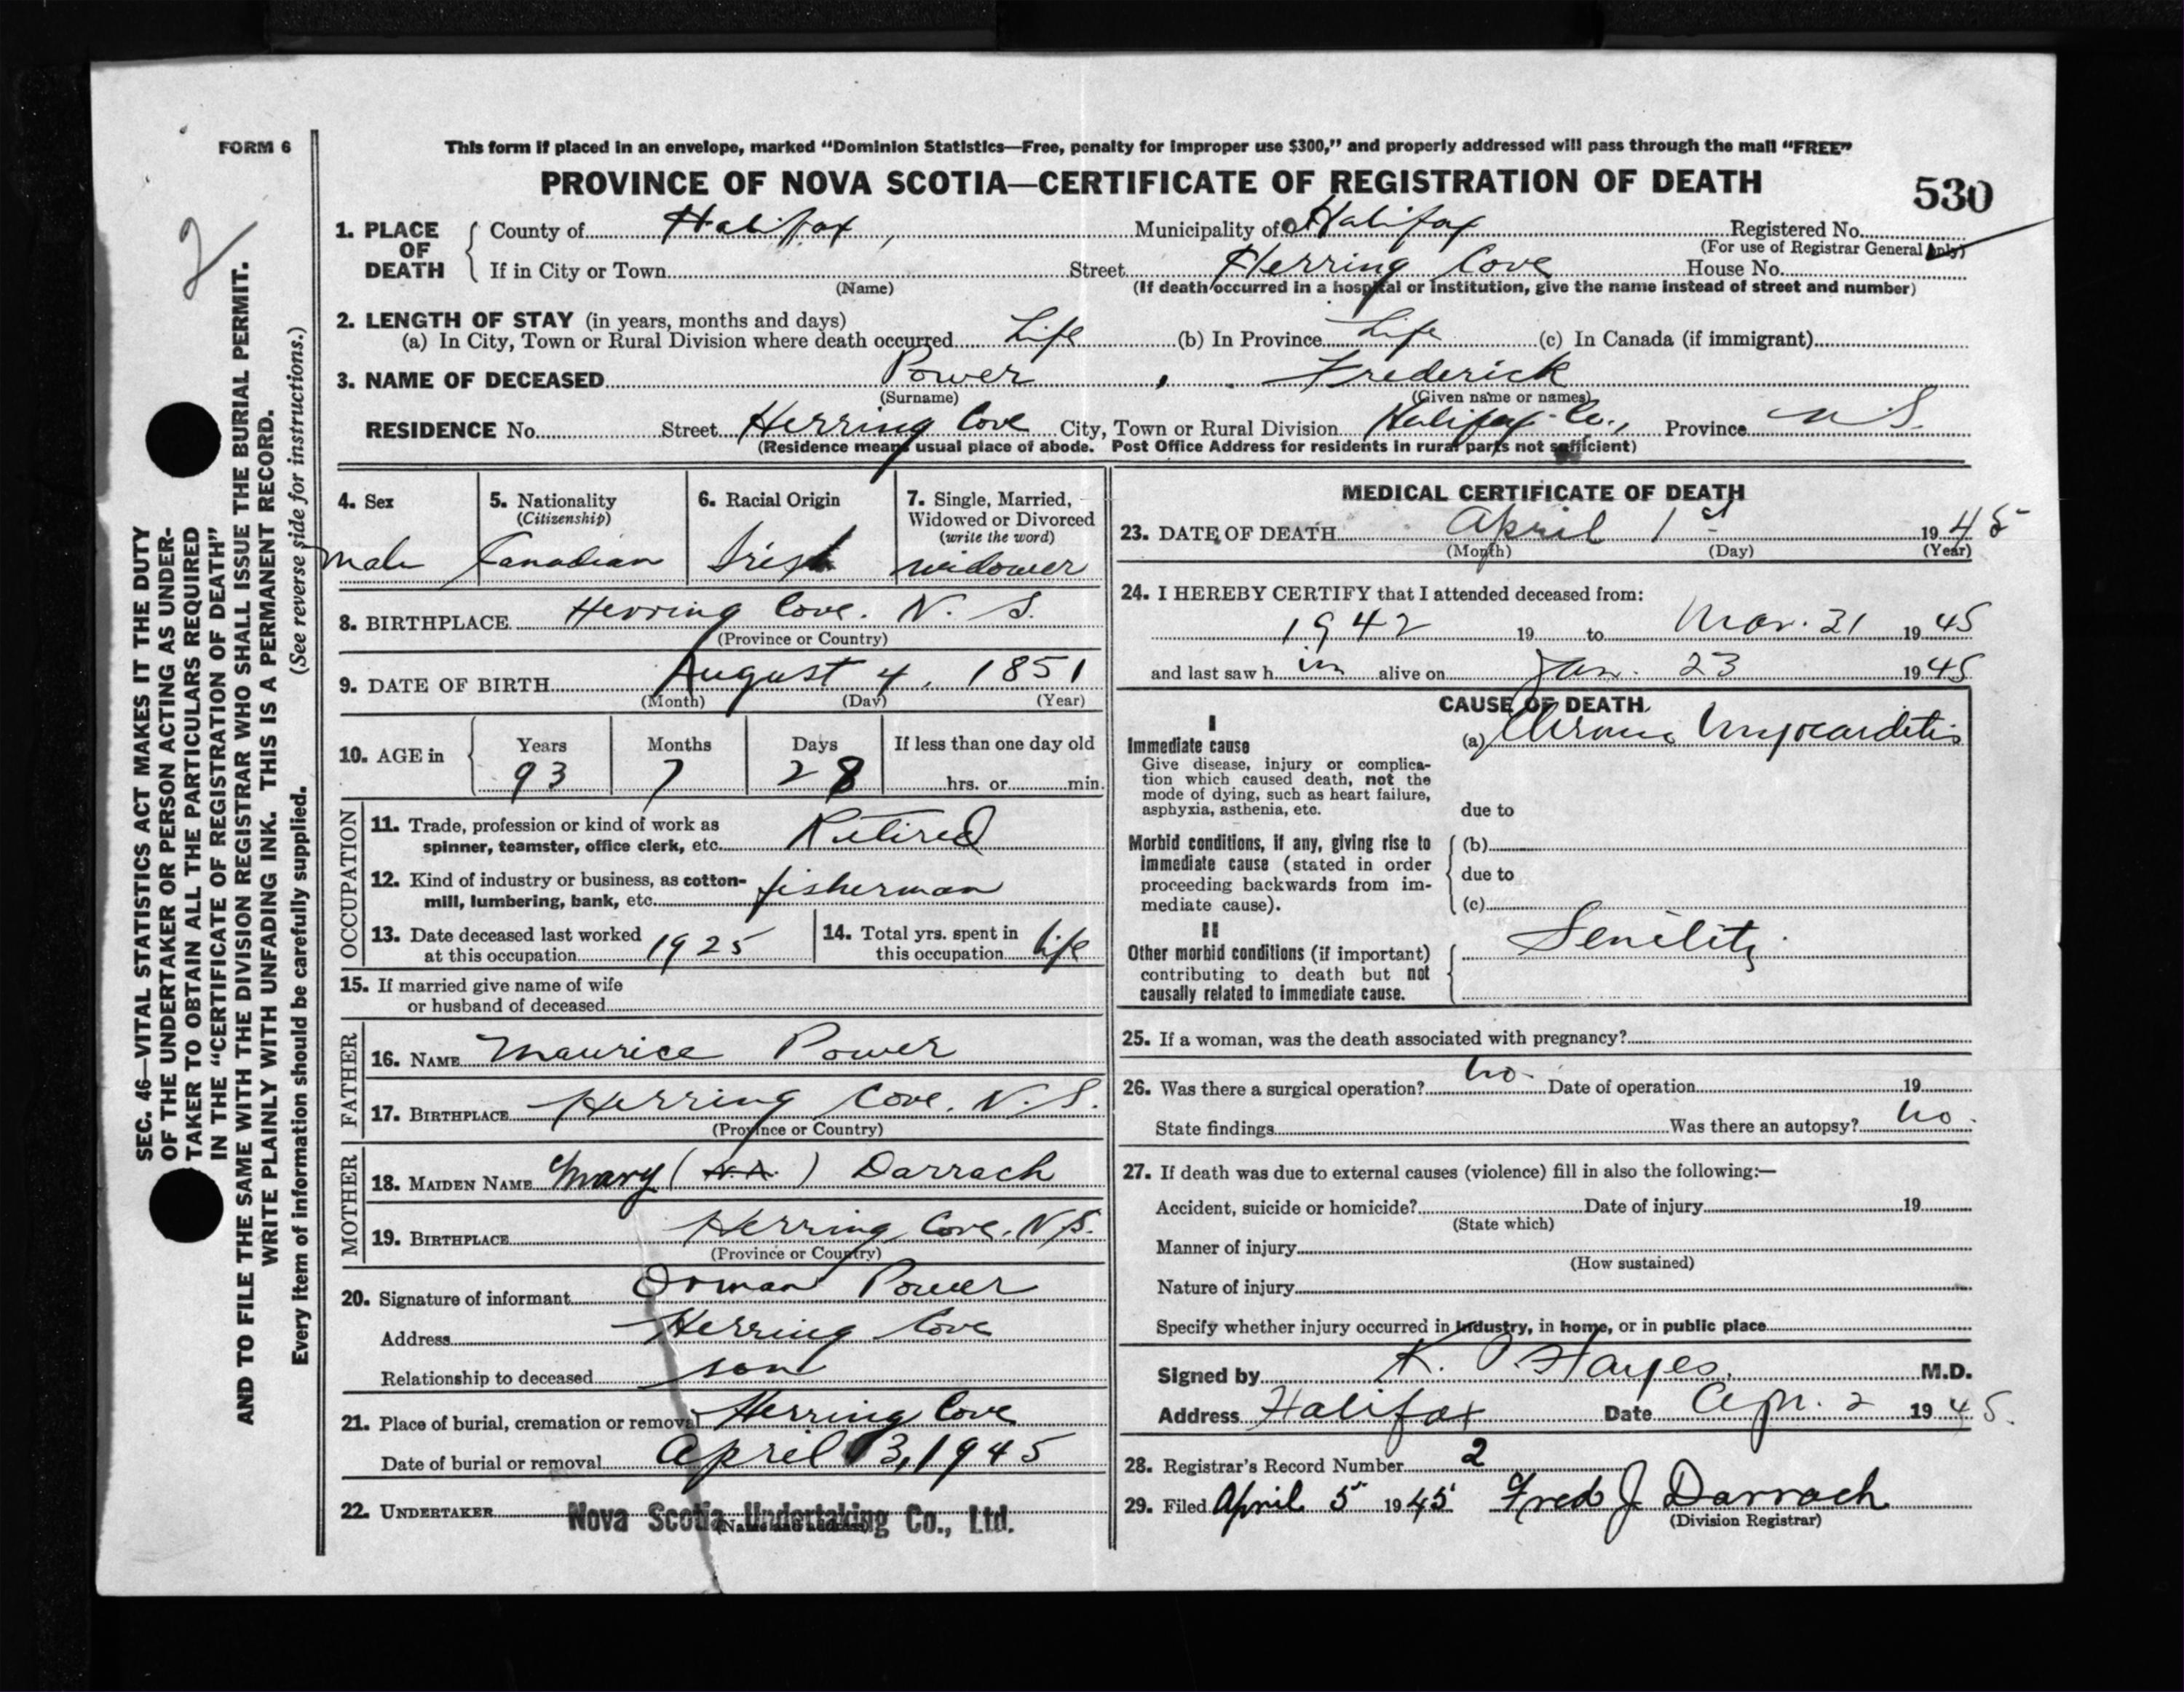 FORM 6
This form if placed in an envelope, marked "Dominion Statistics—Free, penalty for improper use $300," and properly addressed will pass through the mail "FREE"
PROVINCE OF NOVA SCOTIA—CERTIFICATE OF REGISTRATION OF DEATH
530
2
1. PLACE OF DEATH
County of Halifax, Municipality of Halifax Registered No.
(For use of Registrar General only)
If in City or Town Street Herring Cove House No.
(Name) (If death occurred in a hospital or institution, give the name instead of street and number)
2. LENGTH OF STAY (in years, months and days)
(a) In City, Town or Rural Division where death occurred Life (b) In Province Life (c) In Canada (if immigrant)
3. NAME OF DECEASED Power, Frederick
(Surname) (Given name or names)
RESIDENCE No. Street Herring Cove City, Town or Rural Division Halifax Co., Province N.S.
(Residence means usual place of abode. Post Office Address for residents in rural parts not sufficient)
4. Sex
male
5. Nationality
(Citizenship)
Canadian
6. Racial Origin
Irish
7. Single, Married,
Widowed or Divorced
(write the word)
widower
8. BIRTHPLACE Herring Cove. N. S.
(Province or Country)
9. DATE OF BIRTH August 4, 1851
(Month) (Day) (Year)
10. AGE in
Years Months Days If less than one day old
93 7 28 hrs. or min.
OCCUPATION
11. Trade, profession or kind of work as
spinner, teamster, office clerk, etc. Retired
12. Kind of industry or business, as cotton-
mill, lumbering, bank, etc. fisherman
13. Date deceased last worked
at this occupation 1925
14. Total yrs. spent in
this occupation life
15. If married give name of wife
or husband of deceased
FATHER
16. NAME Maurice Power
17. BIRTHPLACE Herring Cove. N.S.
(Province or Country)
MOTHER
18. MAIDEN NAME Mary (N.A.) Darrach
19. BIRTHPLACE Herring Cove. N.S.
(Province or Country)
20. Signature of informant Power
Address Herring Cove
Relationship to deceased son
21. Place of burial, cremation or removal Herring Cove
Date of burial or removal April 3, 1945
22. UNDERTAKER Nova Scotia Undertaking Co., Ltd.
(Name and address)
MEDICAL CERTIFICATE OF DEATH
23. DATE OF DEATH April 1st 1945
(Month) (Day) (Year)
24. I HEREBY CERTIFY that I attended deceased from:
1942 19 to Mar. 31 1945
and last saw h im alive on Jan. 23 1945
CAUSE OF DEATH
I
Immediate cause
Give disease, injury or complica-
tion which caused death, not the
mode of dying, such as heart failure,
asphyxia, asthenia, etc.
(a) Chronic Myocarditis
due to
Morbid conditions, if any, giving rise to
immediate cause (stated in order
proceeding backwards from im-
mediate cause).
(b)
due to
(c)
II
Other morbid conditions (if important)
contributing to death but not
causally related to immediate cause.
Senility.
25. If a woman, was the death associated with pregnancy?
26. Was there a surgical operation? no. Date of operation 19
State findings Was there an autopsy? no.
27. If death was due to external causes (violence) fill in also the following:—
Accident, suicide or homicide? Date of injury 19
(State which)
Manner of injury
(How sustained)
Nature of injury
Specify whether injury occurred in industry, in home, or in public place
Signed by K. P. Hayes, M.D.
Address Halifax Date Apr. 2 1945.
28. Registrar's Record Number 2
29. Filed April 5 1945 Fred J Darrach
(Division Registrar)
SEC. 46—VITAL STATISTICS ACT MAKES IT THE DUTY
OF THE UNDERTAKER OR PERSON ACTING AS UNDER-
TAKER TO OBTAIN ALL THE PARTICULARS REQUIRED
IN THE "CERTIFICATE OF REGISTRATION OF DEATH"
AND TO FILE THE SAME WITH THE DIVISION REGISTRAR WHO SHALL ISSUE THE BURIAL PERMIT.
WRITE PLAINLY WITH UNFADING INK. THIS IS A PERMANENT RECORD.
Every item of information should be carefully supplied. (See reverse side for instructions.)